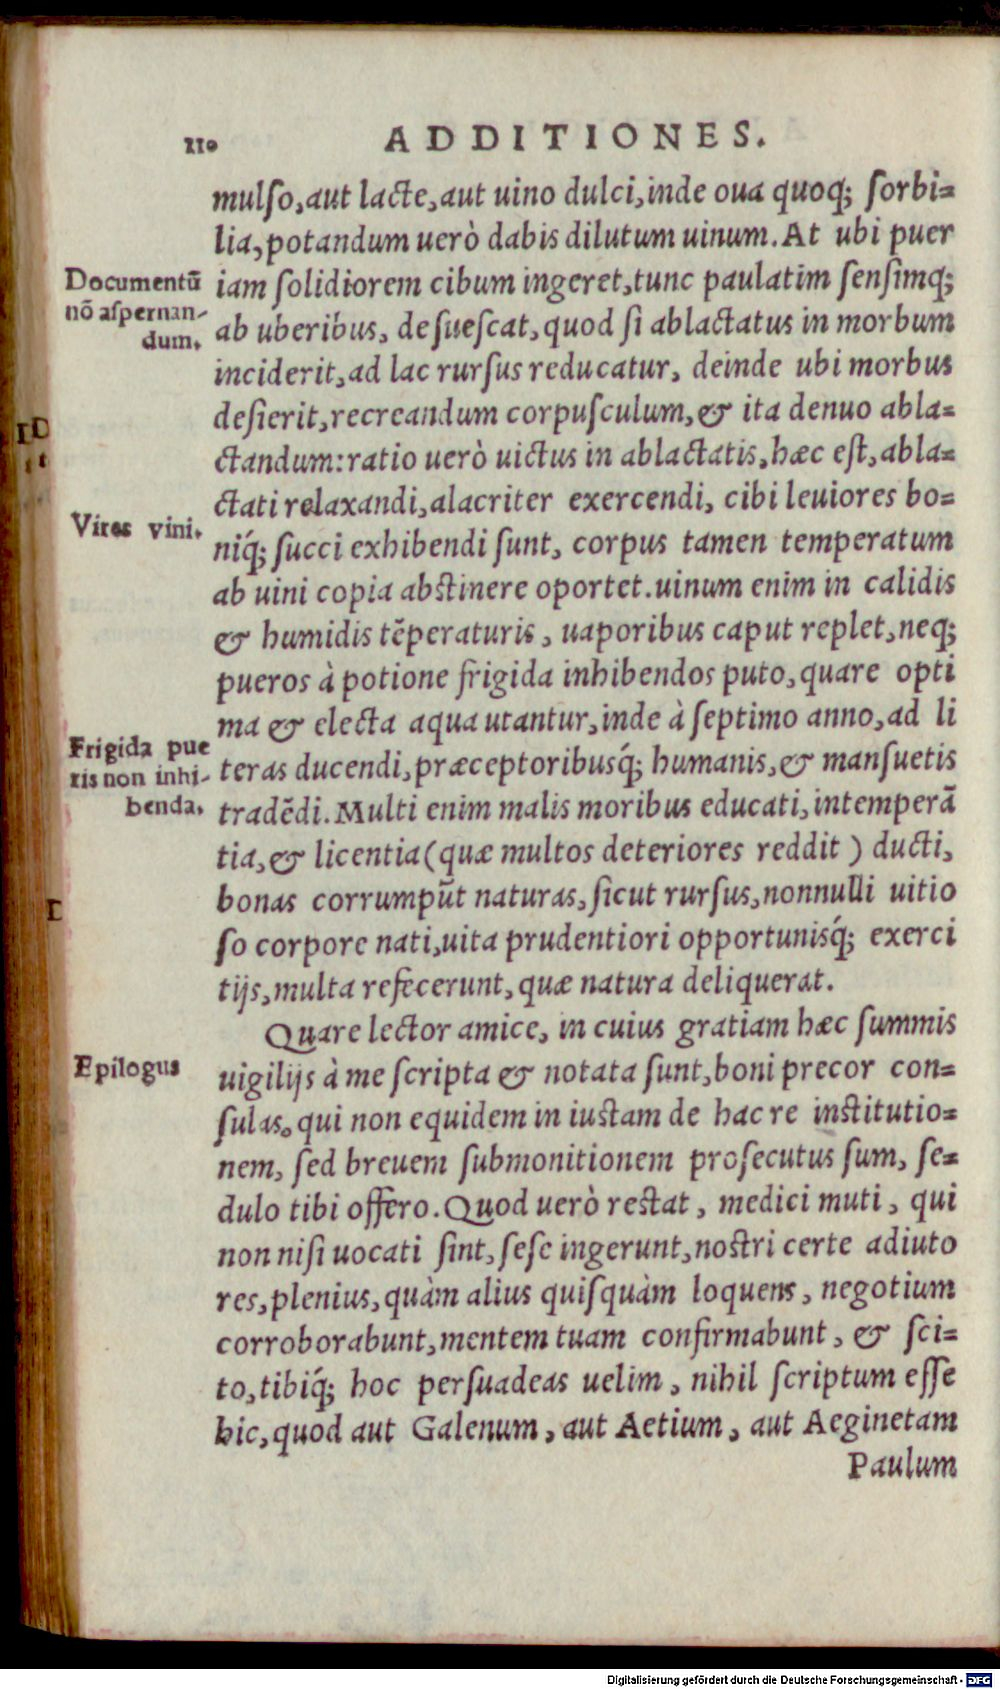 110 ADDITIONES.
mulſo, aut lacte, aut uino dulci, inde oua quoq; ſorbi=
lia, potandum uerò dabis dilutum uinum. At ubi puer
Documentū
nō aſpernan-
dum.
iam ſolidiorem cibum ingeret, tunc paulatim ſenſimq;
ab uberibus, deſueſcat, quod ſi ablactatus in morbum
inciderit, ad lac rurſus reducatur, deinde ubi morbus
deſierit, recreandum corpuſculum, & ita denuo abla=
ctandum: ratio uerò uictus in ablactatis, hæc eſt, abla=
ctati relaxandi, alacriter exercendi, cibi leuiores bo=
Vires vini.
niq́; ſucci exhibendi ſunt, corpus tamen temperatum
ab uini copia abſtinere oportet. uinum enim in calidis
& humidis tēperaturis, uaporibus caput replet, neq;
pueros à potione frigida inhibendos puto, quare opti
ma & electa aqua utantur, inde à ſeptimo anno, ad li
Frigida pue
ris non inhi-
benda.
teras ducendi, præceptoribusq́; humanis, & manſuetis
tradēdi. Multi enim malis moribus educati, intemperā
tia, & licentia (quæ multos deteriores reddit) ducti,
bonas corrumpūt naturas, ſicut rurſus, nonnulli uitio
ſo corpore nati, uita prudentiori opportunisq́; exerci
tijs, multa refecerunt, quæ natura deliquerat.
Quare lector amice, in cuius gratiam hæc ſummis
Epilogus
uigilijs à me ſcripta & notata ſunt, boni precor con=
ſulas. qui non equidem in iuſtam de hac re inſtitutio=
nem, ſed breuem ſubmonitionem proſecutus ſum, ſe=
dulo tibi offero. Quod uerò reſtat, medici muti, qui
non niſi uocati ſint, ſeſe ingerunt, noſtri certe adiuto
res, plenius, quàm alius quiſquàm loquens, negotium
corroborabunt, mentem tuam confirmabunt, & ſci=
to, tibiq́; hoc perſuadeas uelim, nihil ſcriptum eſſe
hic, quod aut Galenum, aut Aetium, aut Aeginetam
Paulum
Digitalisierung gefördert durch die Deutsche Forschungsgemeinschaft - DFG